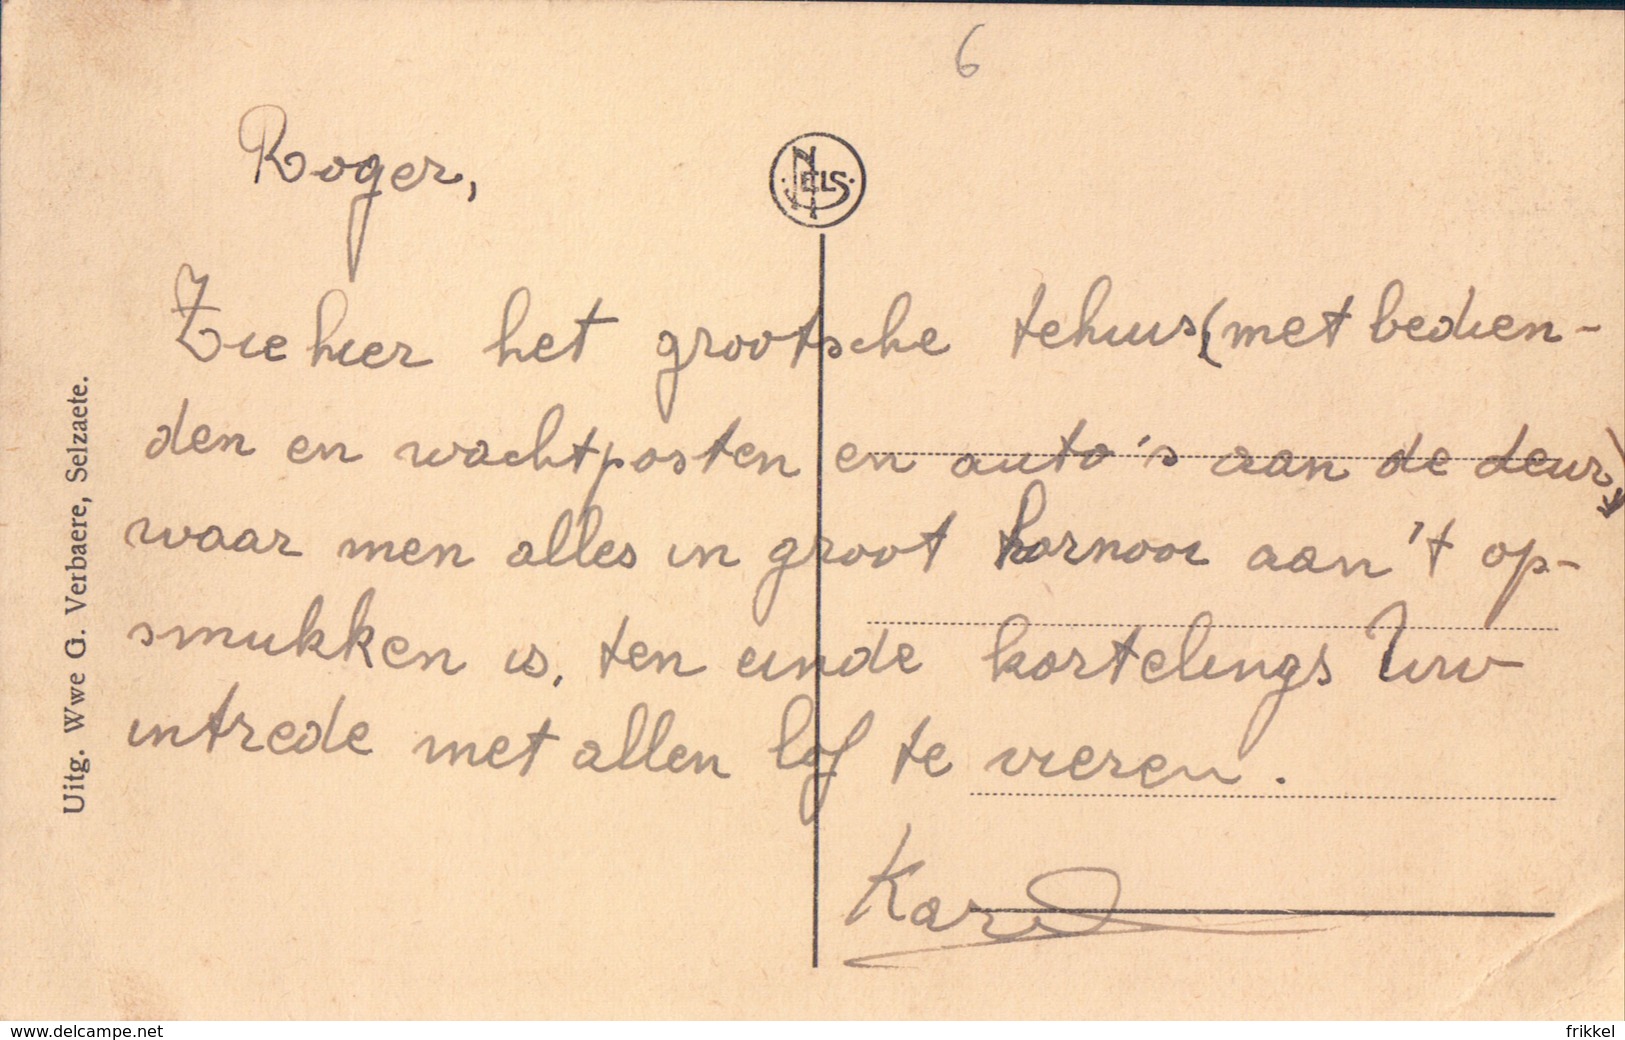 6
Roger,
NELS
Zie hier het grootsche tehuis (met bedien-
den en wachtposten en auto's aan de deur)
waar men alles in groot hornooi aan 't op-
smukken is, ten einde kortelings Uw
intrede met allen lof te vieren.
Karel
Uitg. Wwe G. Verbaere, Selzaete.
www.delcampe.net
frikkel